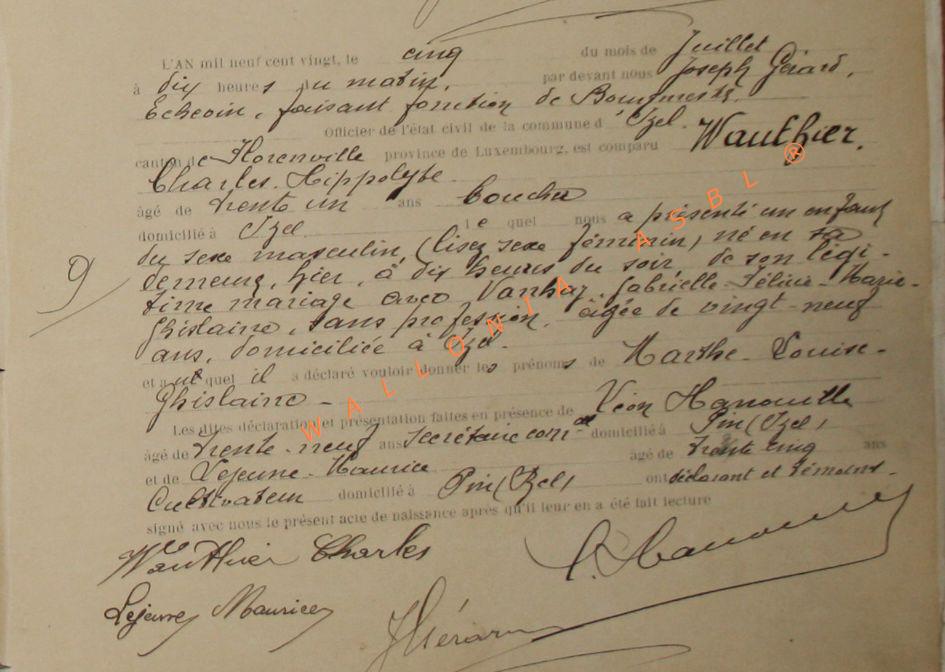 L'AN mil neuf cent vingt, le cinq du mois de Juillet
à dix heures du matin, par devant nous Joseph Gérard,
Echevin, faisant fonction de Bourgmestre,
Officier de l'état civil de la commune d'Izel
canton de Florenville province de Luxembourg, est comparu Wauthier,
Charles-Hippolyte
âgé de trente un ans boucher
domicilié à Izel lequel nous a présenté un enfant
du sexe masculin, (lisez sexe féminin) né en sa
9
demeure, hier, à dix heures du soir, de son légi-
time mariage avec Gabrielle-Félicie-Marie-
Ghislaine, sans profession, âgée de vingt-neuf
ans, domiciliée à Izel.
et auquel il a déclaré vouloir donner les prénoms de Marthe-Louise-
Ghislaine-
Les dites déclaration et présentation faites en présence de Léon Hanouille
âgé de trente-neuf ans secrétaire comal domicilié à Pin (Izel)
et de Lejeune-Maurice âgé de trente cinq ans
Cultivateur domicilié à Pin (Izel) ont déclarant et témoins.
signé avec nous le présent acte de naissance après qu'il leur en a été fait lecture
Wauthier Charles
L. Hanouille
Lejeune Maurice
J Gérard
WALLONIA ASBL ®